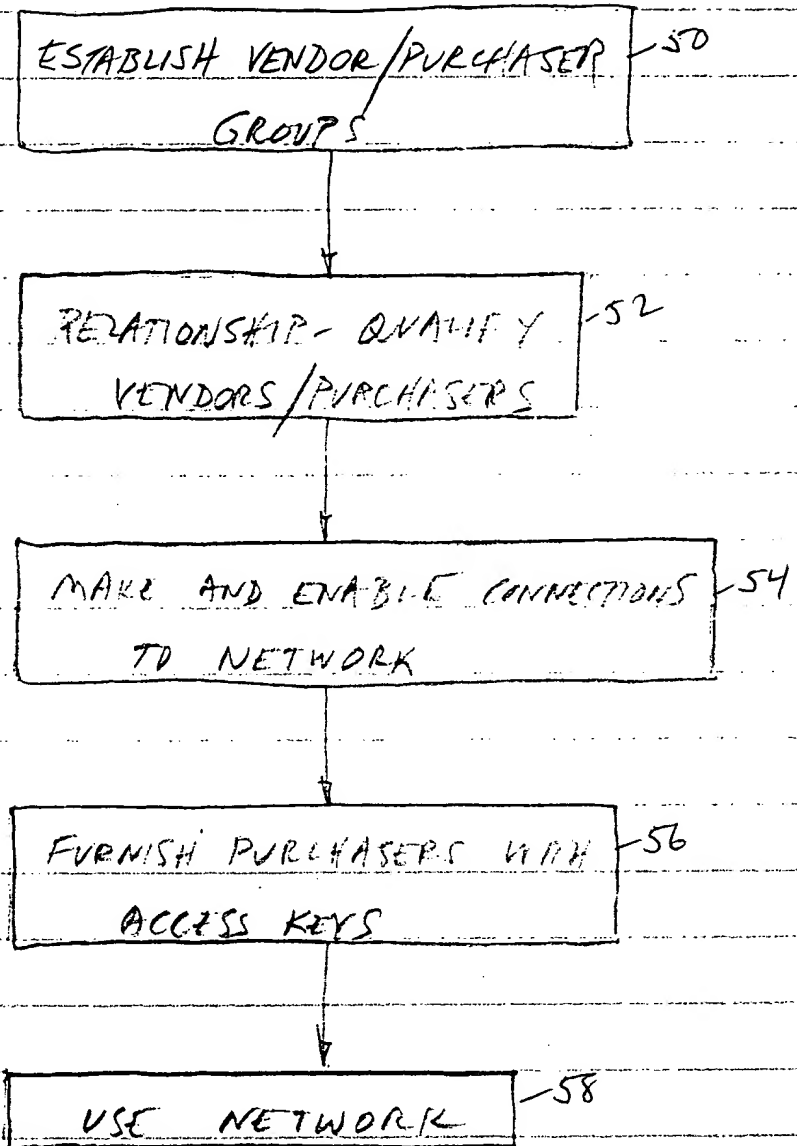 ESTABLISH VENDOR/PURCHASER
50
GROUPS
RELATIONSHIP- QUALIFY
52
VENDORS/PURCHASERS
MAKE AND ENABLE CONNECTIONS
54
TO NETWORK
FURNISH PURCHASERS WITH
56
ACCESS KEYS
USE NETWORK
58